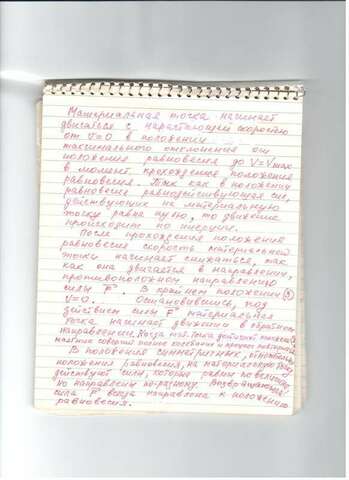 Материальная точка начинает
двигаться с нарастающей скоростью
от V=0 в положении
максимального отклонения от
положения равновесия до V=Vmax
в момент прохождения положения
равновесия. Так как в положении
равновесия равнодействующая сил,
действующих на материальную
точку равна нулю, то движение
происходит по инерции.
После прохождения положения
равновесия скорость материальной
точки начинает снижаться, так
как она двигается в направлении,
противоположном направлению
силы F. В крайнем положении
V=0. Остановившись, под
действием силы F материальная
точка начинает движение в обратном
направлении. Когда мат. точка достигает
маятник совершит полное колебание и процесс
В положениях симметричных, относительно
положения равновесия, на материальную точку
действуют силы, которые равны по величине,
но направлены по-разному. Возвращающая
сила F всегда направлена к положению
равновесия.